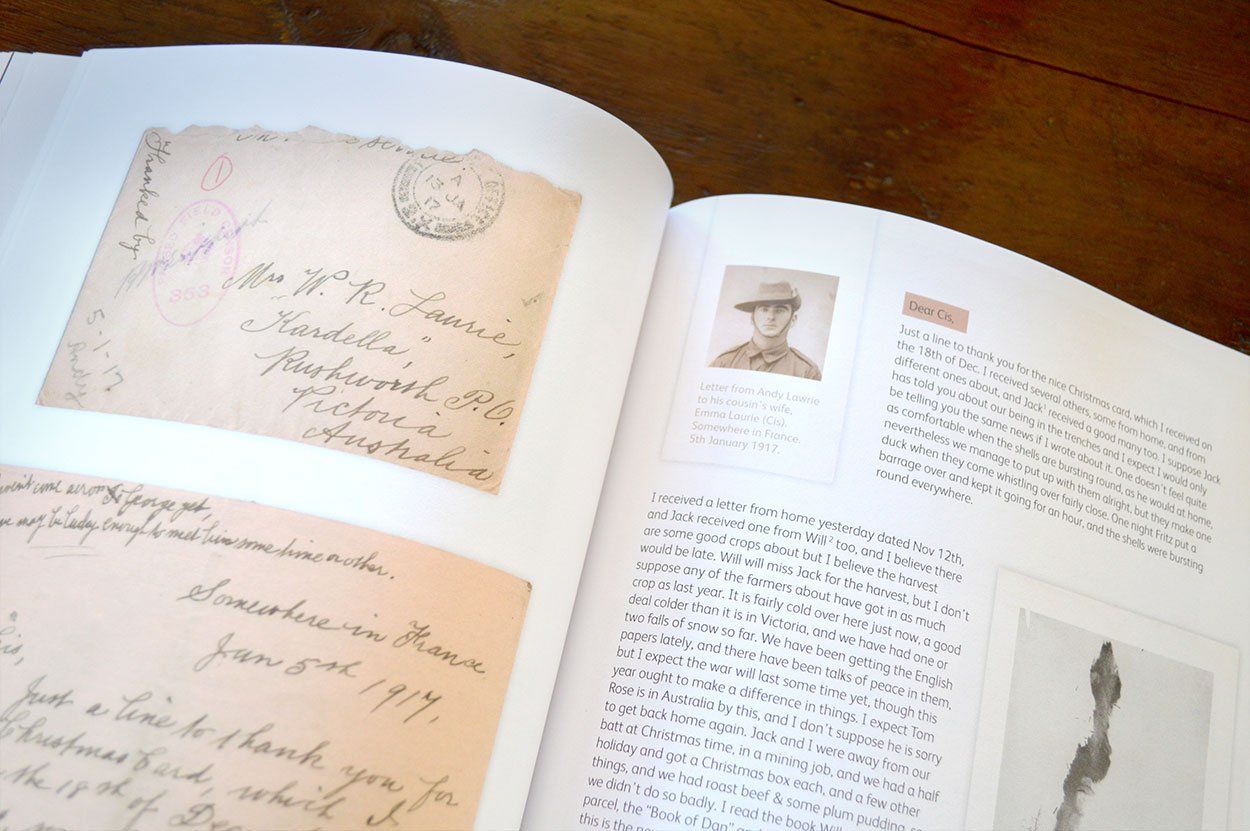 Thanked by
1
FIELD
353
A
13 JA
17
Mrs W. R. Laurie,
"Kardella",
Rushworth P.O.
Victoria
Australia
5-1-17
Andy
come across George yet,
may be lucky enough to meet him some time or other.
Somewhere in France
Jan 5th 1917.
Cis,
Just a line to thank you for
Christmas Card, which I
the 18th of Dec
Letter from Andy Lawrie
to his cousin's wife,
Emma Laurie (Cis).
Somewhere in France.
5th January 1917.
Dear Cis,
Just a line to thank you for the nice Christmas card, which I received on
the 18th of Dec. I received several others, some from home, and from
different ones about, and Jack¹ received a good many too. I suppose Jack
has told you about our being in the trenches and I expect I would only
be telling you the same news if I wrote about it. One doesn't feel quite
as comfortable when the shells are bursting round, as he would at home,
nevertheless we manage to put up with them alright, but they make one
duck when they come whistling over fairly close. One night Fritz put a
barrage over and kept it going for an hour, and the shells were bursting
round everywhere.
I received a letter from home yesterday dated Nov 12th,
and Jack received one from Will² too, and I believe there
are some good crops about but I believe the harvest
would be late. Will will miss Jack for the harvest, but I don't
suppose any of the farmers about have got in as much
crop as last year. It is fairly cold over here just now, a good
deal colder than it is in Victoria, and we have had one or
two falls of snow so far. We have been getting the English
papers lately, and there have been talks of peace in them,
but I expect the war will last some time yet, though this
year ought to make a difference in things. I expect Tom
Rose is in Australia by this, and I don't suppose he is sorry
to get back home again. Jack and I were away from our
batt at Christmas time, in a mining job, and we had a half
holiday and got a Christmas box each, and a few other
things, and we had roast beef & some plum pudding, so
we didn't do so badly. I read the book Will
parcel, the "Book of Dan"
this is the